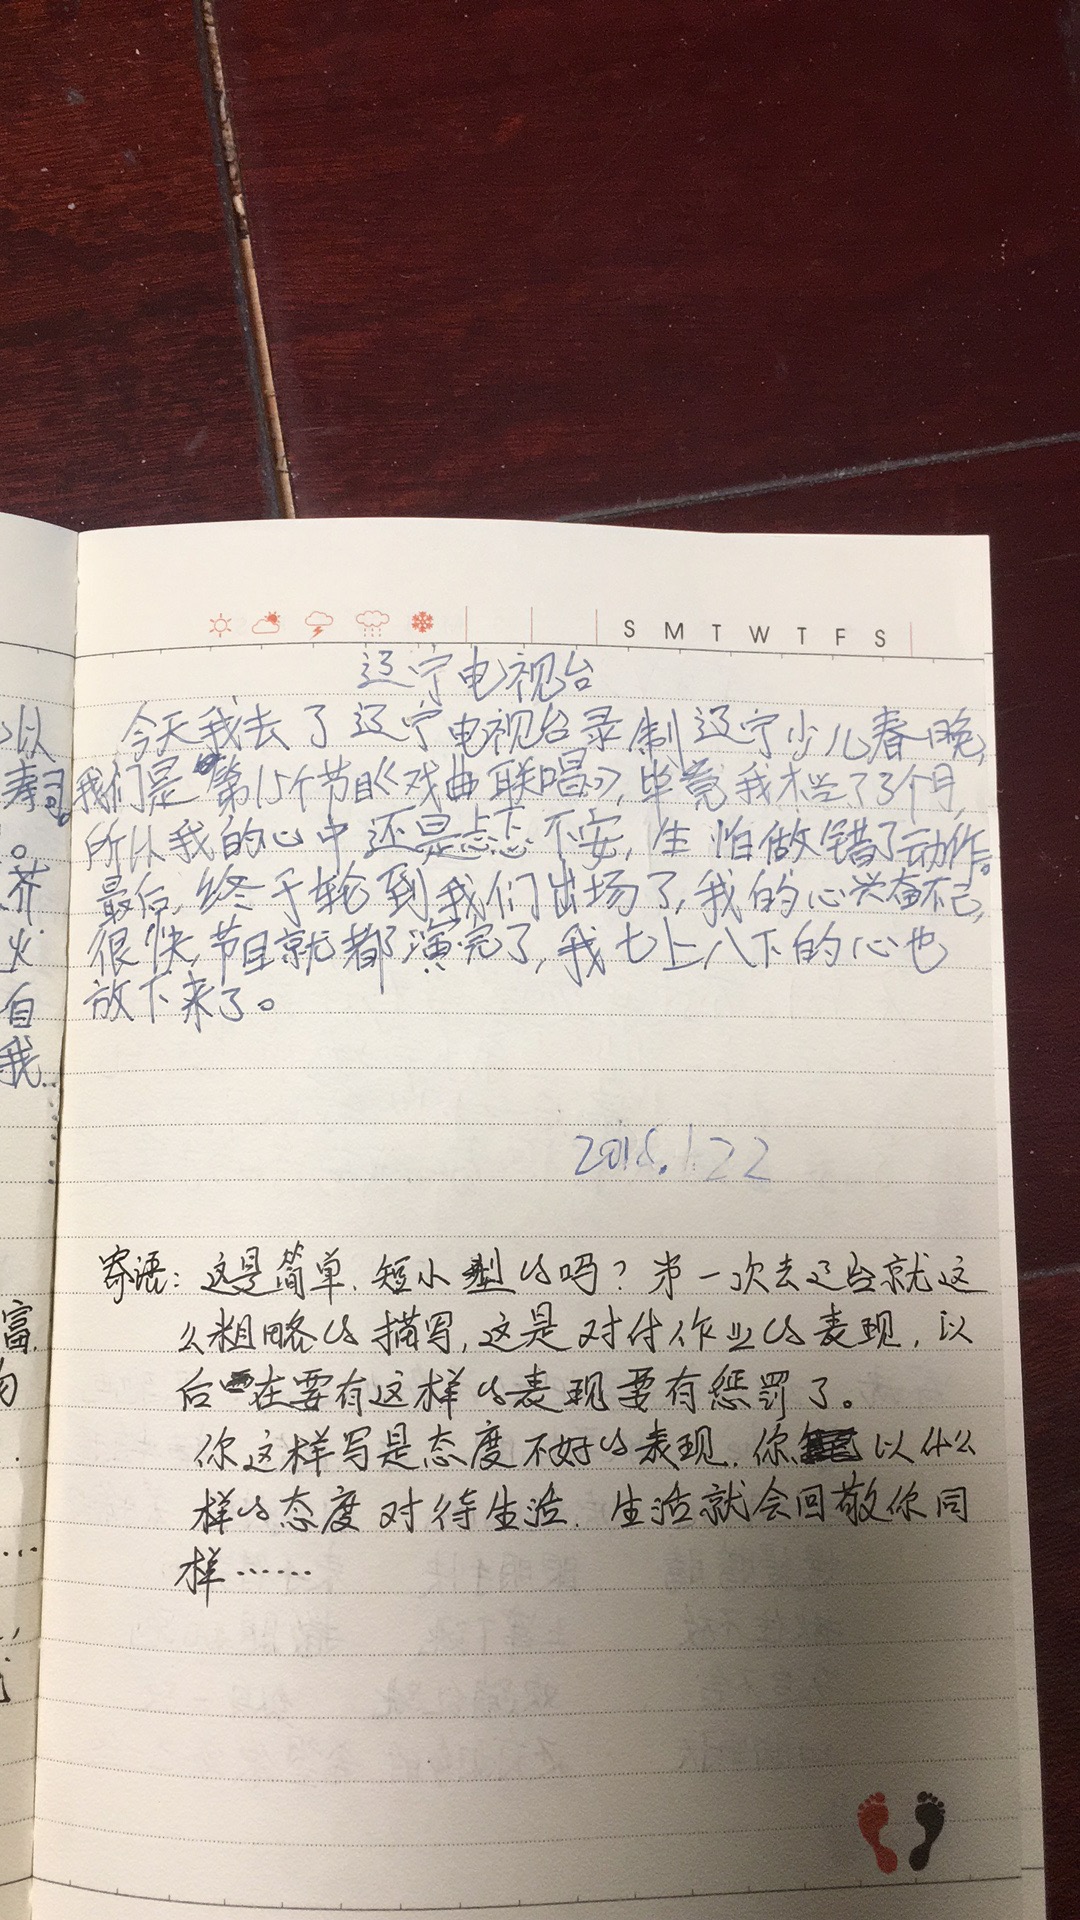 S M T W T F S
辽宁电视台
今天我去了辽宁电视台录制辽宁少儿春晚,
我们是第15个节目《戏曲联唱》,毕竟我才学了3个月,
所以我的心中还是忐忑不安,生怕做错了动作。
最后,终于轮到我们出场了,我的心兴奋不已,
很快,节目就都演完了,我七上八下的心也
放下来了。
22
寄语:这是简单、短小型的吗?第一次去辽台就这
么粗略的描写,这是对付作业的表现,以
后在要有这样的表现要有惩罚了。
你这样写是态度不好的表现,你以什么
样的态度对待生活,生活就会回敬你同
样……
以
寿司。
。芥
火
自
我…
富